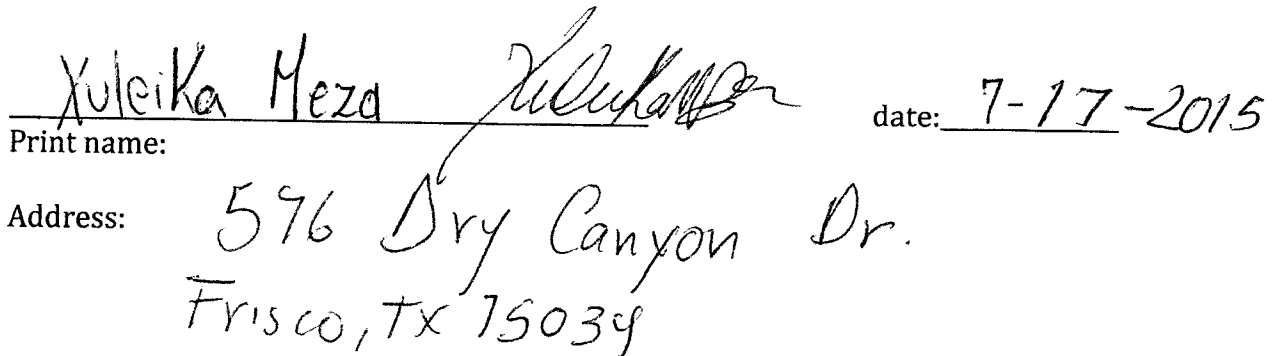 Xuleika Meza date: 7-17-2015
Print name:
Address: 576 Dry Canyon Dr.
Frisco, TX 75034